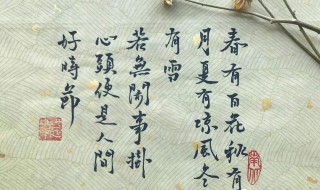 春有百花秋有
月夏有凉風冬
有雪
若無閑事掛
心頭便是人間
好時節